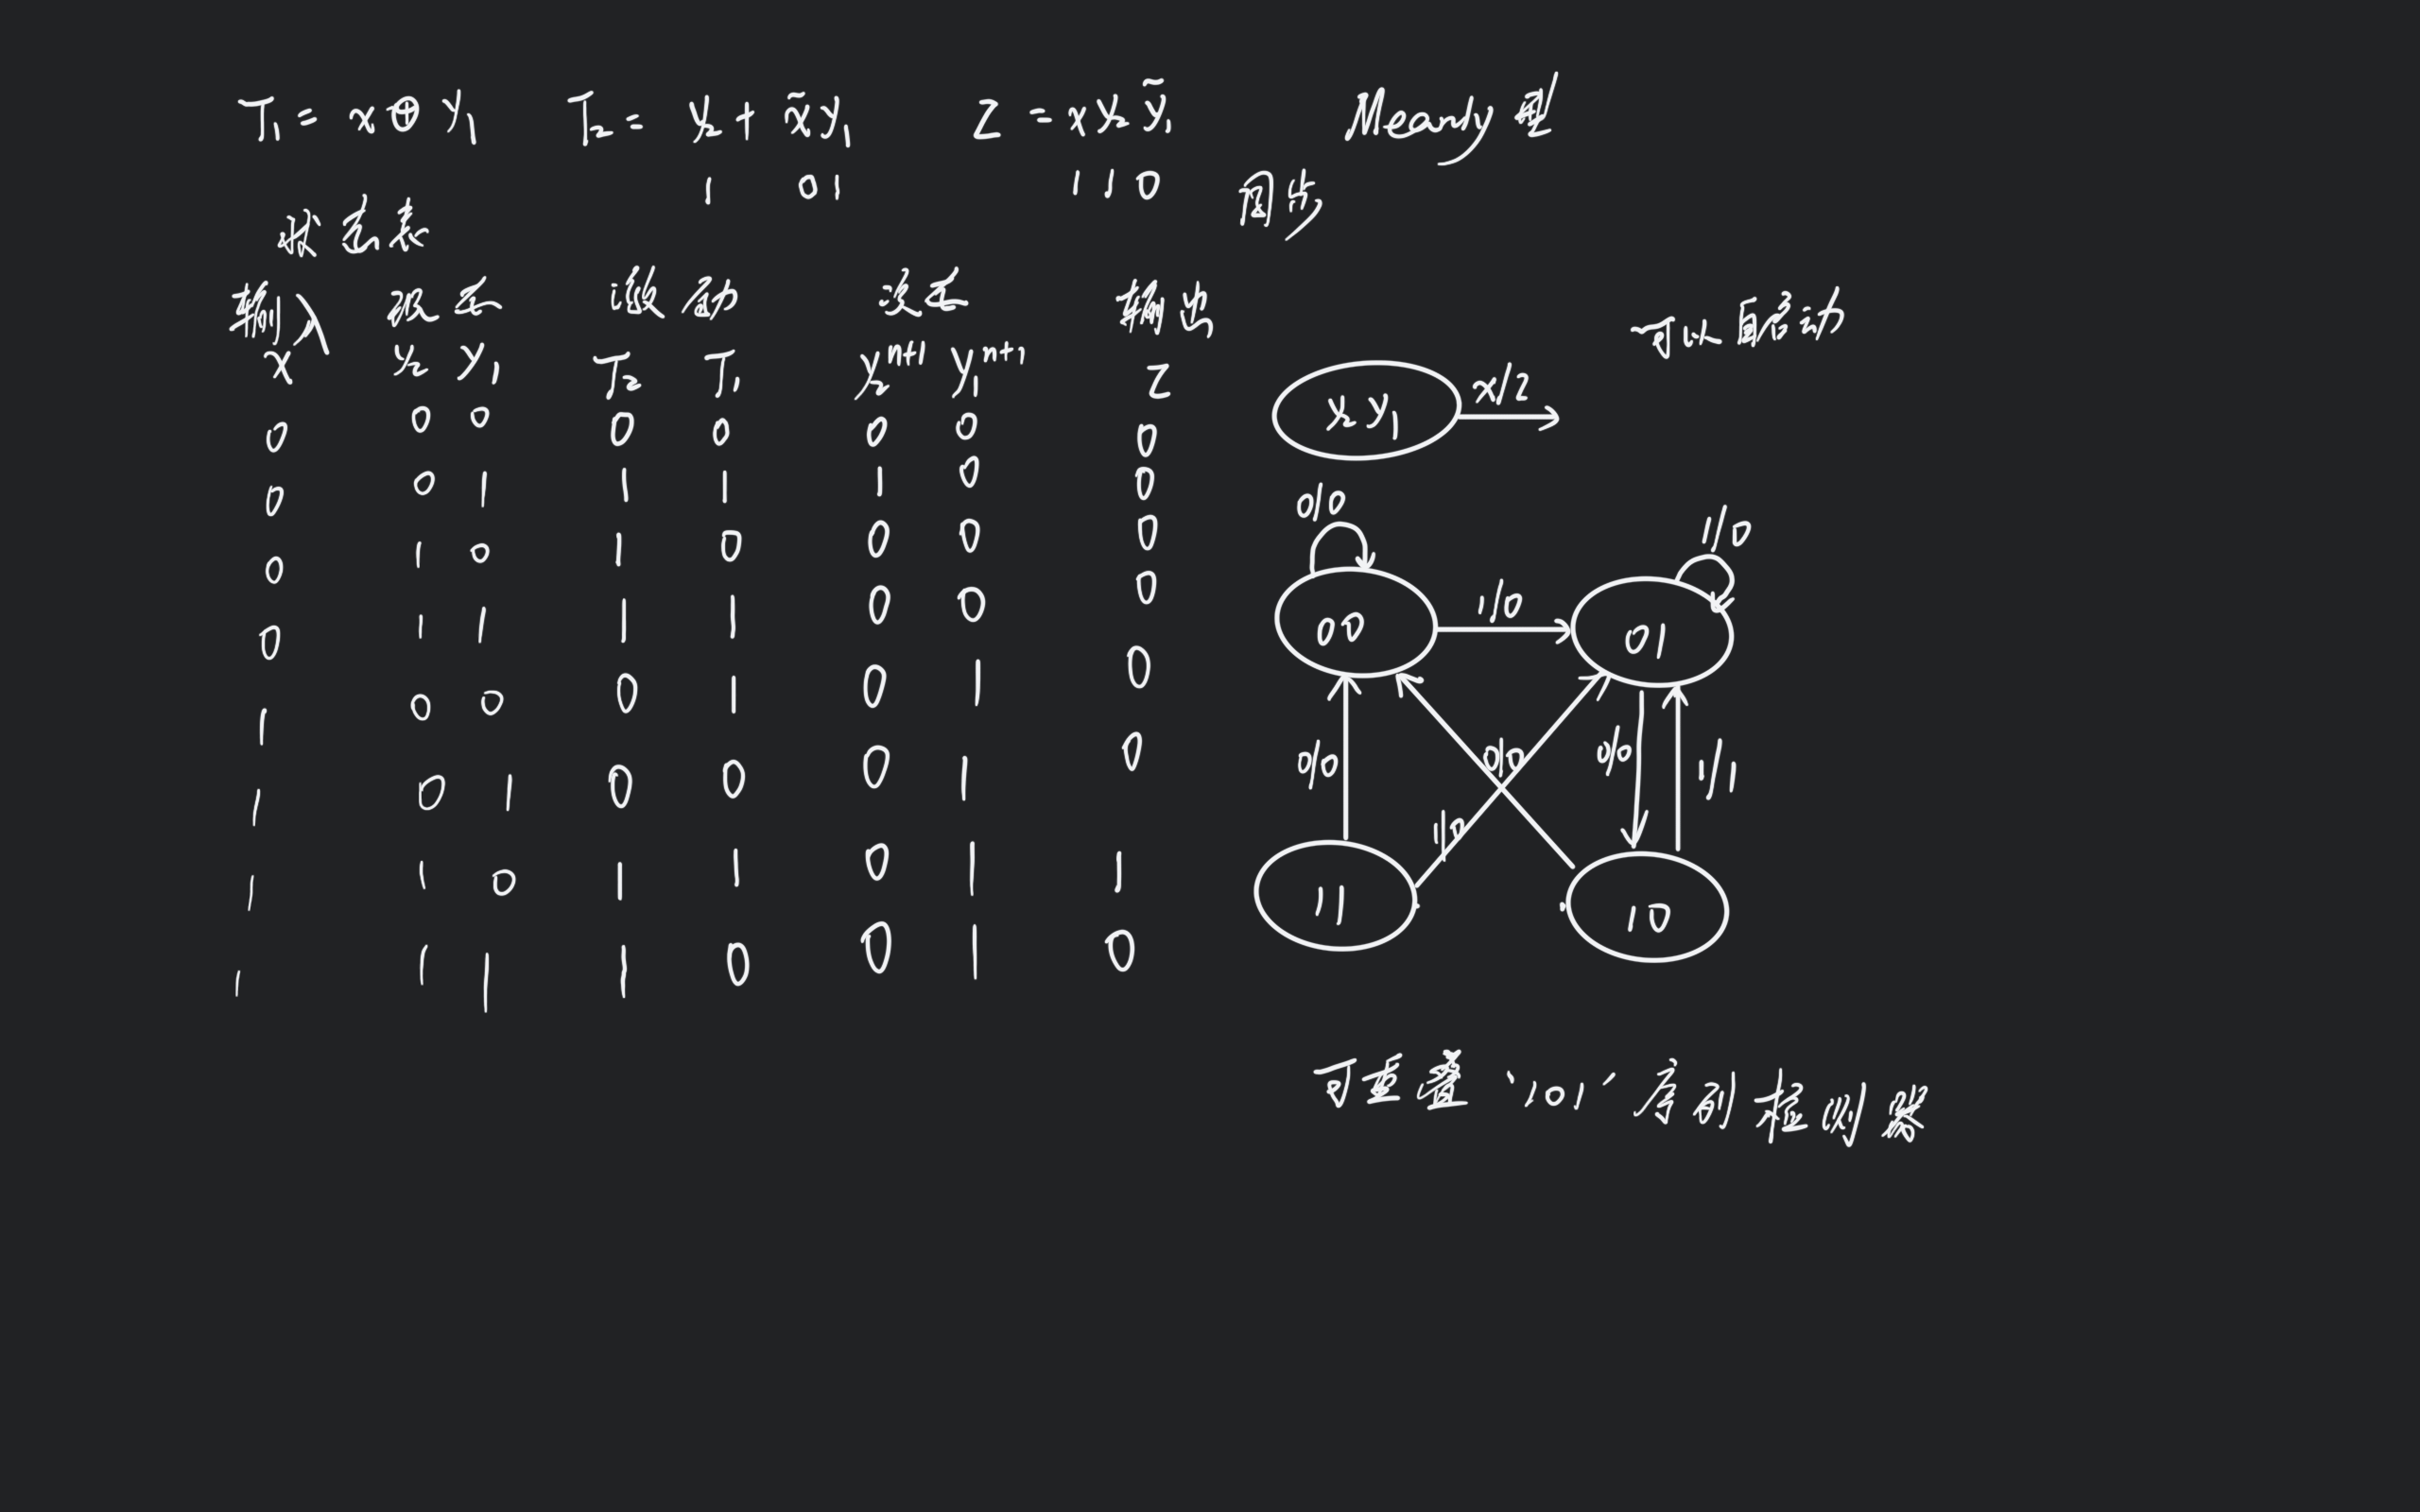 T₁ = x ⊕ y₁ T₂ = y₂ + x̃ y₁ Z = x y₂ ỹ₁ Mearly 型
1 01 110 同步
状态表
输入 现态 激励 次态 输出 可以自启动
x y₂ y₁ T₂ T₁ y₂ⁿ⁺¹ y₁ⁿ⁺¹ Z
0 0 0 0 0 0 0 0
0 0 1 1 1 1 0 0
0 1 0 1 0 0 0 0
0 1 1 1 1 0 0 0
1 0 0 0 1 0 1 0
1 0 1 0 0 0 1 0
1 1 0 1 1 0 1 1
1 1 1 1 0 0 1 0
y₂ y₁ x/z
0/0 1/0
00 1/0 01
0/0 0/0 0/0 1/1
1/0
11 10
可重叠 '101' 序列检测器